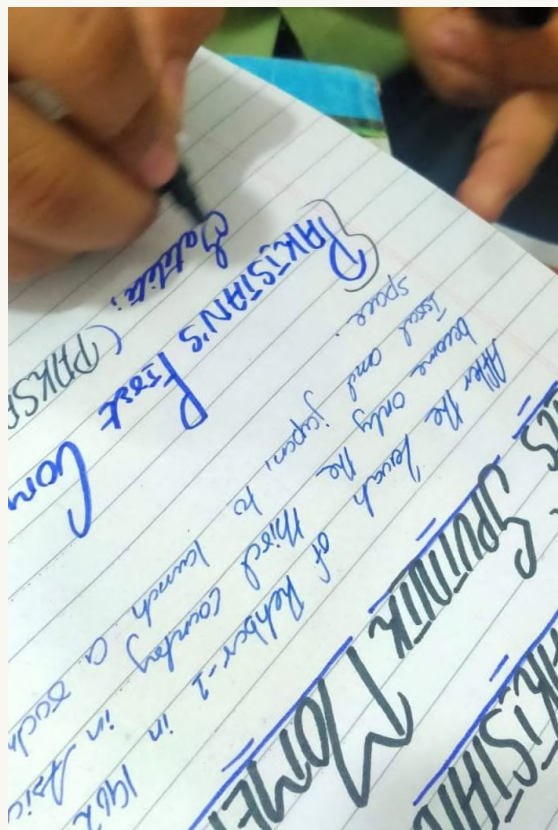 PAKISTAN
SPUTNIK MOME
After the lauch of Rehber-1 in 1962
became only the third country in Asia
Isral and japan, to lunch a such
space.
PAKISTAN'S First Com
Satelite; (PAKSA